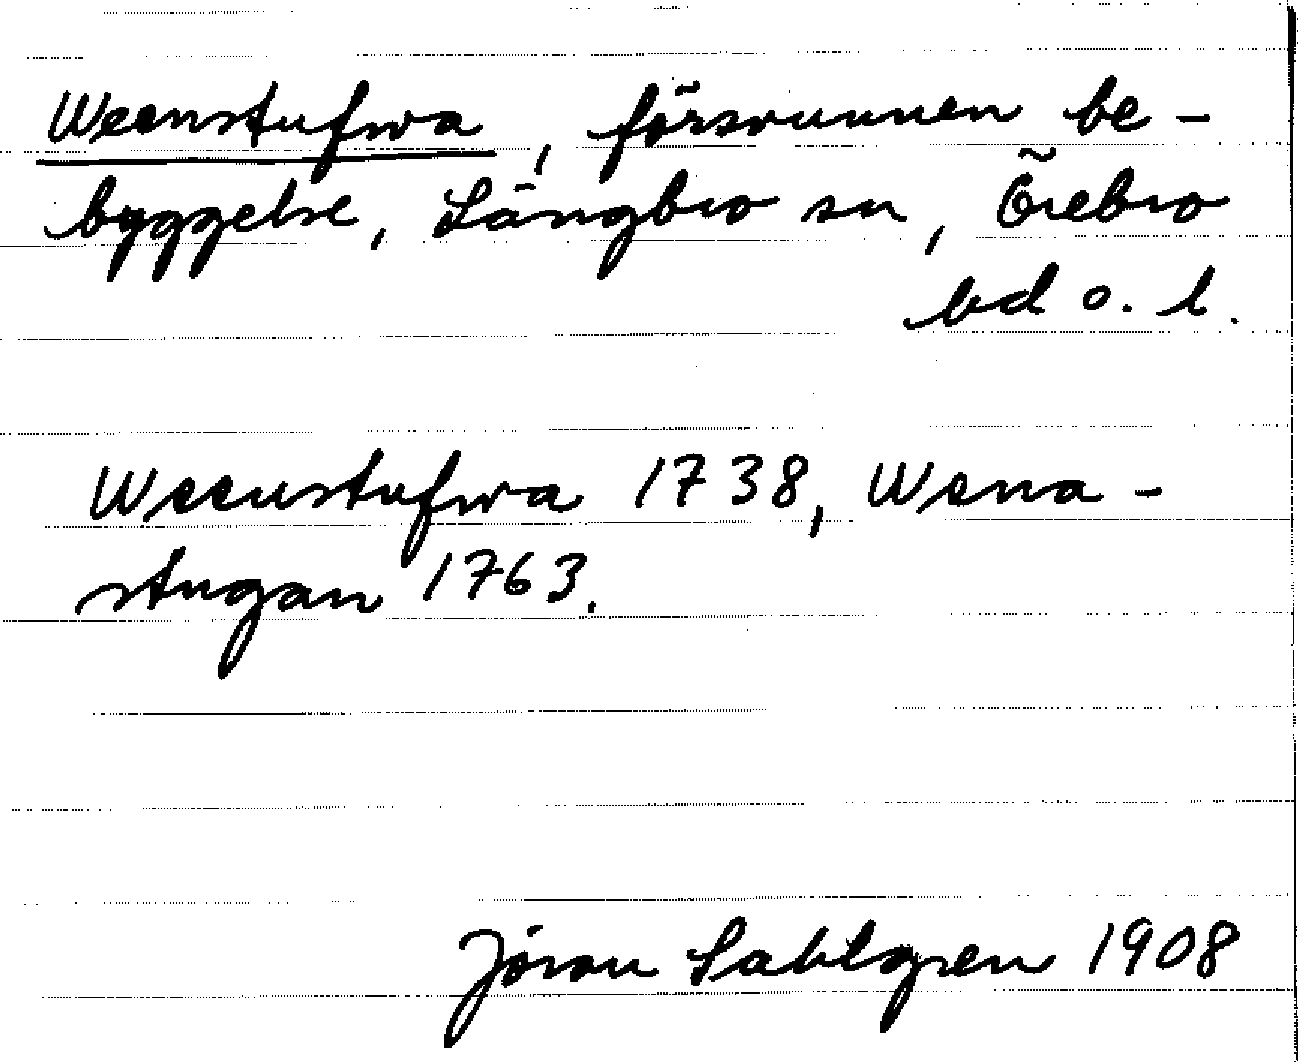 Weenstufwa, försvunnen be-
byggelse, Längbro sn, Örebro
hd o. l.
Weenstufwa 1738, Wena-
stugan 1763.
Jöran Sahlgren 1908